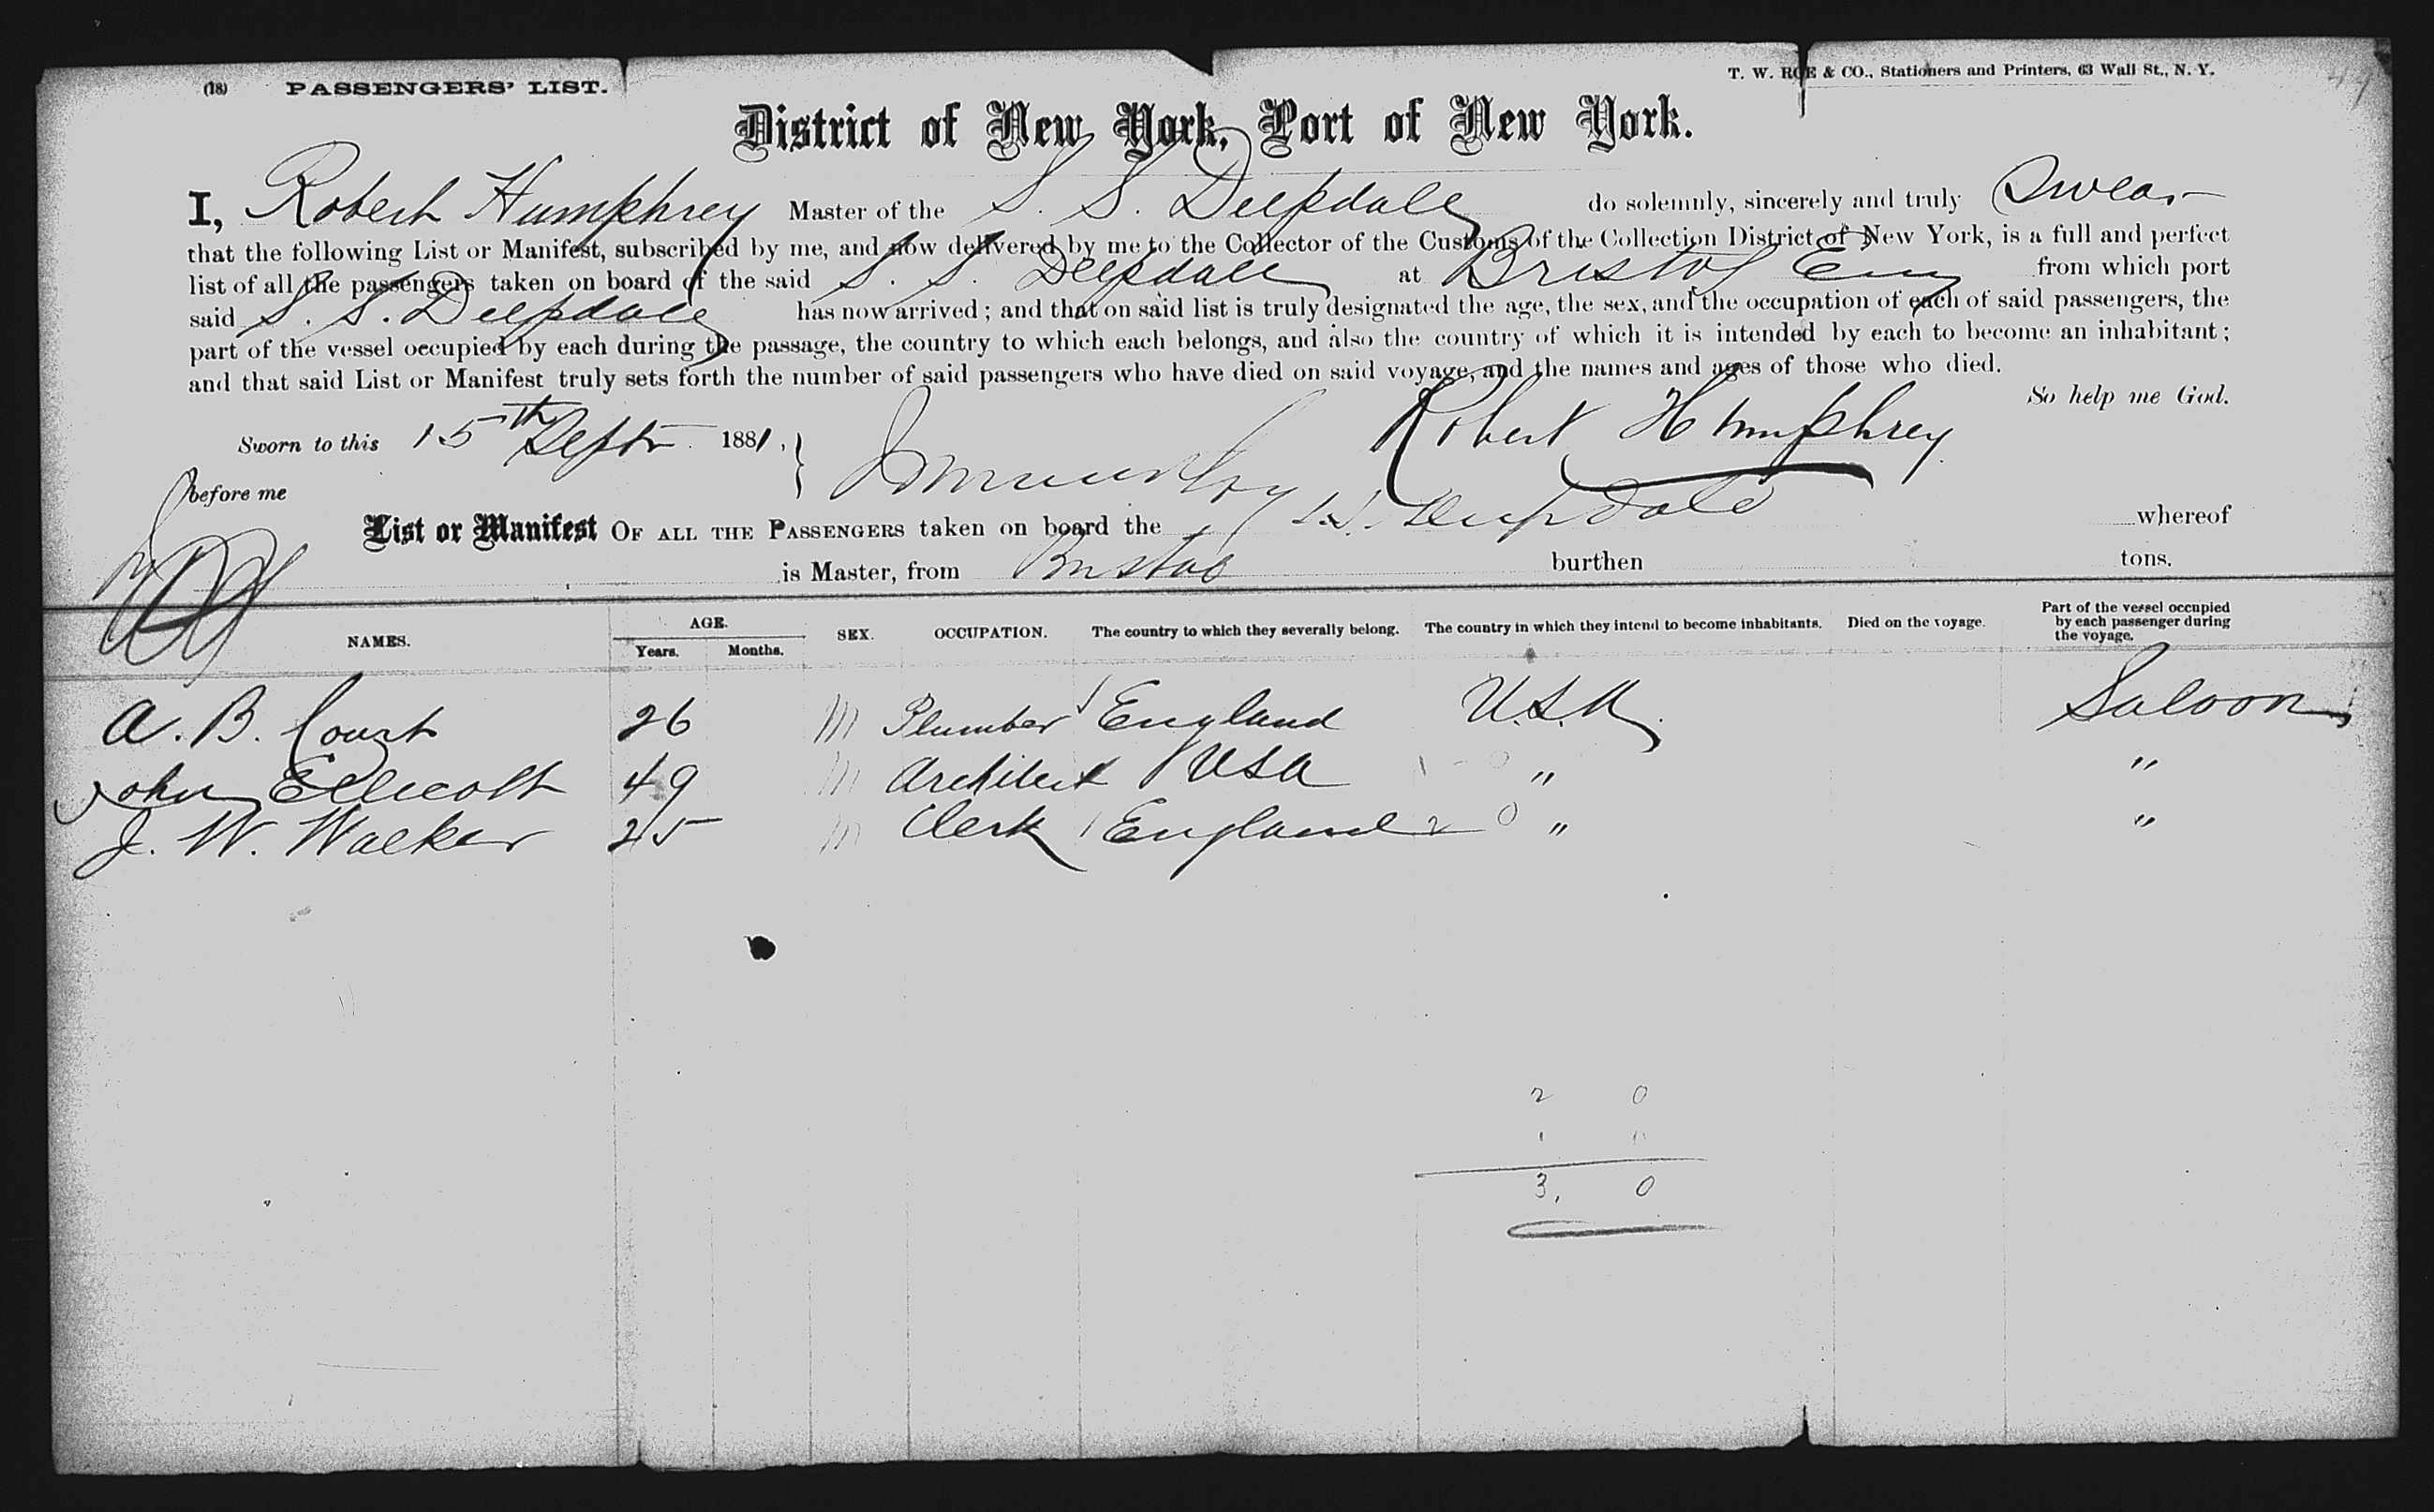 (18) PASSENGERS' LIST.
T. W. ROE & CO., Stationers and Printers, 63 Wall St., N. Y.
District of New York, Port of New York.
I, Robert Humphrey Master of the S. S. Deepdale do solemnly, sincerely and truly Swear
that the following List or Manifest, subscribed by me, and now delivered by me to the Collector of the Customs of the Collection District of New York, is a full and perfect
list of all the passengers taken on board of the said S. S. Deepdale at Bristol Eng from which port
said S. S. Deepdale has now arrived; and that on said list is truly designated the age, the sex, and the occupation of each of said passengers, the
part of the vessel occupied by each during the passage, the country to which each belongs, and also the country of which it is intended by each to become an inhabitant;
and that said List or Manifest truly sets forth the number of said passengers who have died on said voyage, and the names and ages of those who died.
So help me God.
Sworn to this 15th Septr 1881. Robert Humphrey
before me
List or Manifest OF ALL THE PASSENGERS taken on board the S.S. Deepdale whereof
is Master, from Bristol burthen tons.
NAMES. AGE. Years. Months. SEX. OCCUPATION. The country to which they severally belong. The country in which they intend to become inhabitants. Died on the voyage. Part of the vessel occupied by each passenger during the voyage.
A. B. Court 26 M Plumber England U.S.A. Saloon
John Ellicott 49 M Architect USA " "
J. W. Walker 25 M Clerk England " "
2 0
1 0
3, 0